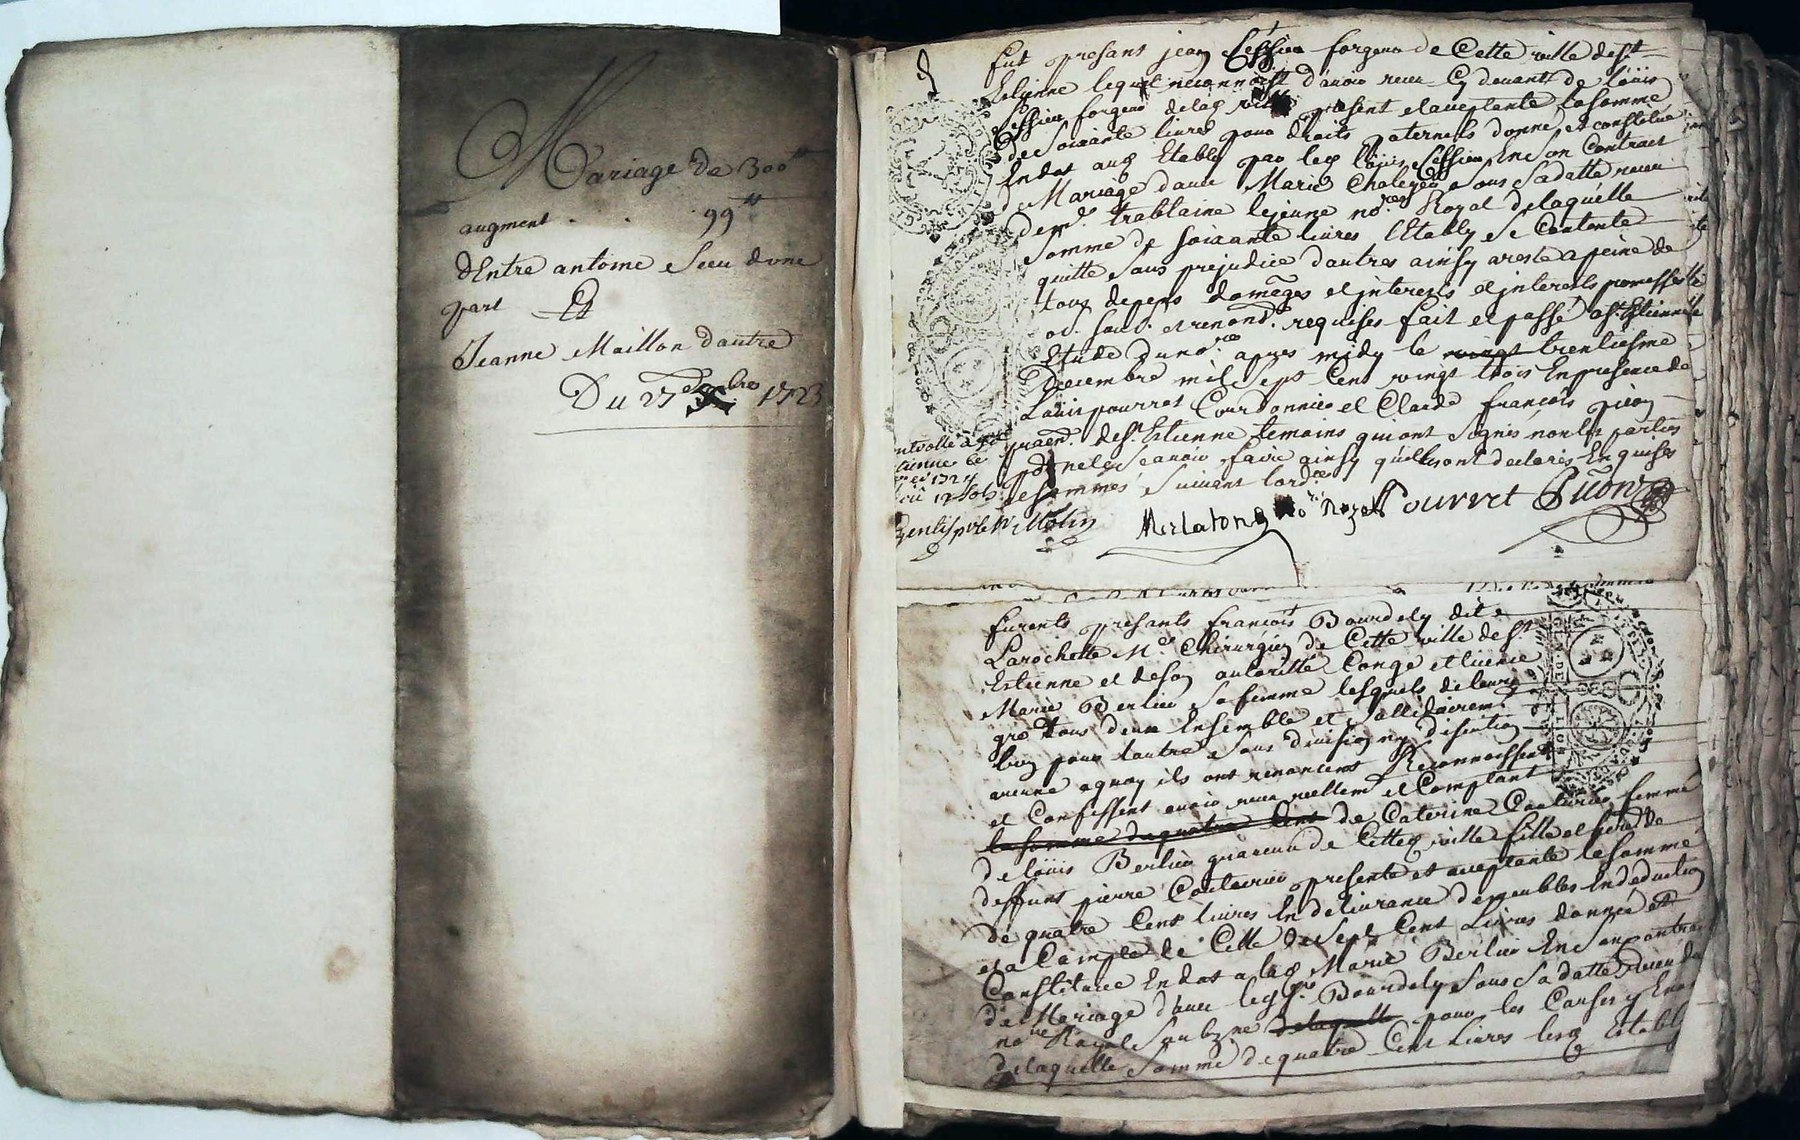 Mariage de 300ᵗᵗ
augment . . . 99ᵗᵗ
d'Entre antoine Seeu d'une
part Et
Jeanne Maillon d'autre
Du 27 xbre 1723
fut presant jean Sessieu forgeur de Cette ville de St
Estienne lequel reconnoist d'avoir receu Cy devant de louis
Sessieu forgeur delad ville present et acceptante la somme
de Soixante livres pour droits paternels donné et constitué
En dot aud Estably par led louis Sessieu En son Contract
de Mariage d'avec Marie Chaleyer Sous Sa datte receu
de me. trablaine lejeune nore Royal de laquelle
Somme de Soixante livres l'Estably Se Contente
quitte Sans prejudice d'autres ainsy areste a peine de
tous depens domèges et interests et interests promesse
ob. soub. et renond. requises fait et passé a St Etienne
Etude du nore apres midy le vingt trentiesme
Decembre mil Sept Cent vingt trois En presence de
Louis pourret Courdonnier et Claude françois picon
praen. de St Estienne temoins qui ont Signés non les parties
pour ne le Scavoir faire ainsy qu'elles ont declarés Enquises
et Sommés Suivant lordce
ntrollé a St
tienne le
1724
12 Sols
Merlaton No Royal Pourret Picon
furents presants françois Bourdely dit
Larochette Me Chirurgien de Cette ville de St
Estienne et de son autoritté Congé et licence
Marie Berlier Sa femme lesquels de leurs
gré tous deux Ensemble et Sollidairemt
lun pour l'autre Sous division ny discution
aucune aquoy ils ont renoncent Reconnoissent
et Confessent avoir receu reellemt et Comptant
la somme de quatre Cent de Caterine Couturier femme
de louis Berlier quareur de Cetted ville fille et here de
deffunt pierre Couturier presente et acceptante la Somme
de quatre Cent livres En delivrance de meubles En deduction
et a Compte de Cette de Sept Cent Livres donnée et
Constituée En dot a lad Marie Berlier En Son contract
de Mariage d'avec led Sr. Bourdely Sous Sa datte receu de
nore Royal Soubzne de laquelle pour les Causes y Enon
de laquelle Somme de quatre Cent Livres lesd Establ